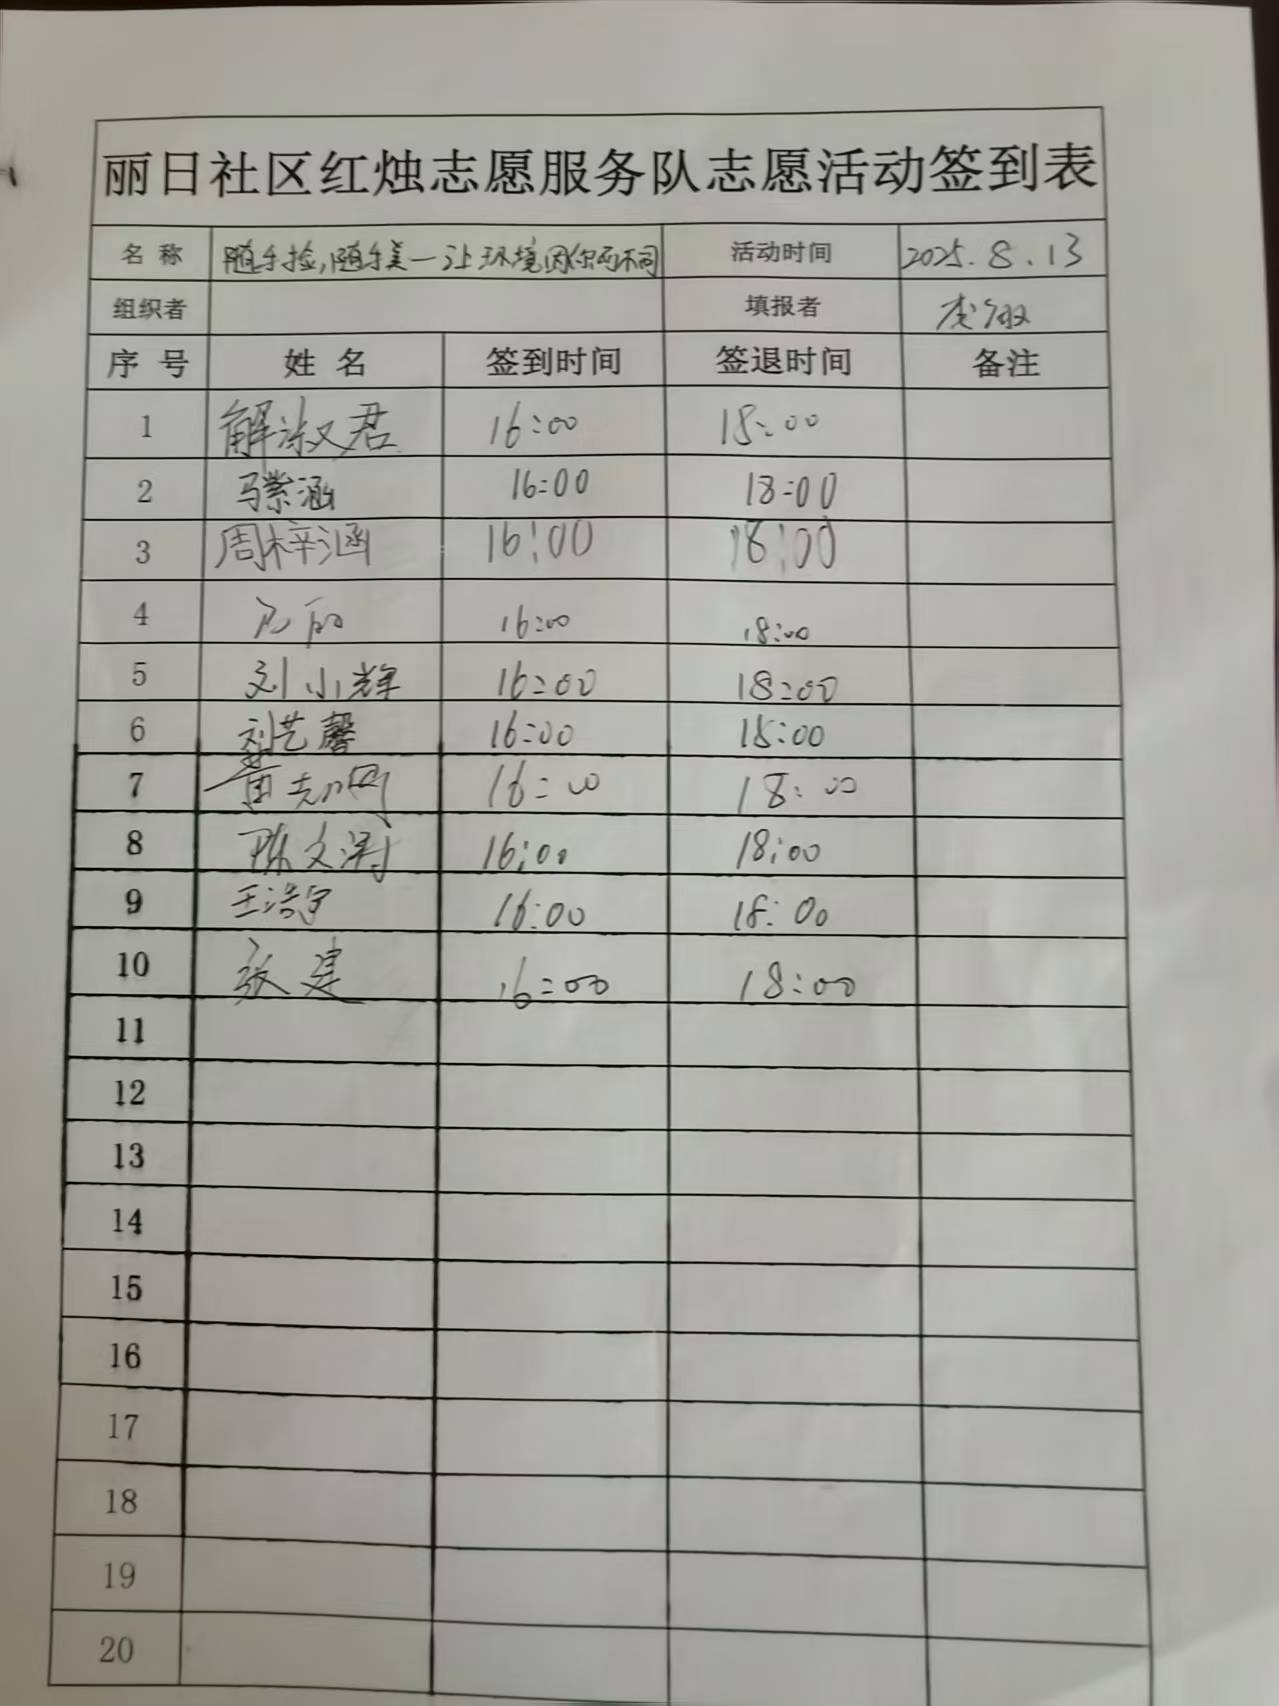 丽日社区红烛志愿服务队志愿活动签到表
名 称 随手捡,随手美一让环境因你而不同 活动时间 2025.8.13
组织者 填报者 李淑
序 号 姓 名 签到时间 签退时间 备注
1 解淑君 16:00 18:00
2 马紫涵 16:00 18:00
3 周梓涵 16:00 18:00
4 16:00 18:00
5 刘小辉 16:00 18:00
6 刘艺馨 16:00 18:00
7 黄志刚 16:00 18:00
8 陈文涛 16:00 18:00
9 王浩宇 16:00 18:00
10 张建 16:00 18:00
11
12
13
14
15
16
17
18
19
20